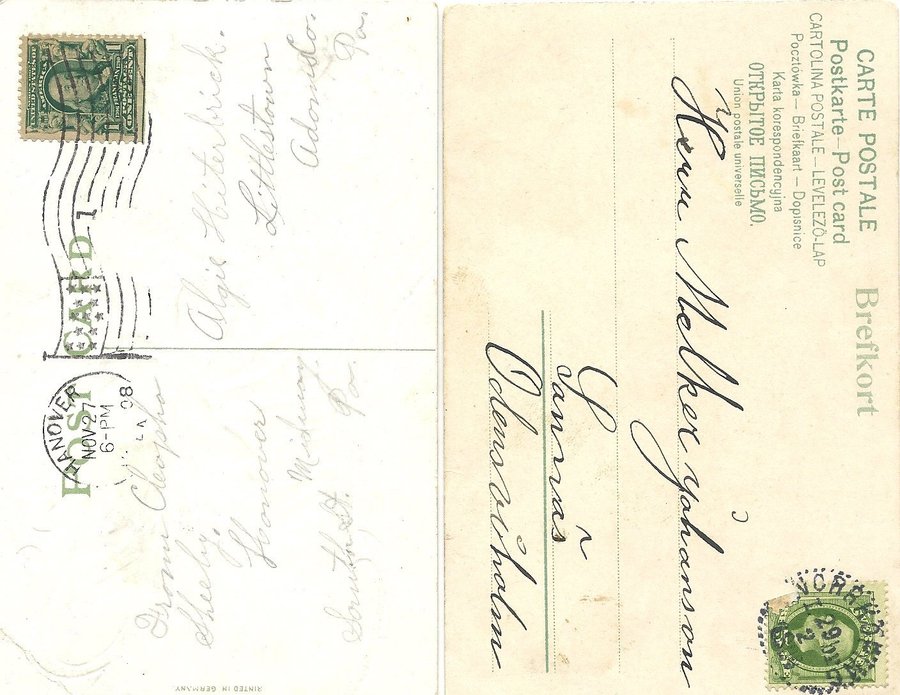 POST CARD
HANOVER
NOV 27
6-PM
08
PA.
Algie Hiterbrick.
Littlestown
Adams Co.
Pa.
From Cleopha
Sheely.
Hanover
Midway
South St. Pa.
PRINTED IN GERMANY
CARTE POSTALE
Postkarte – Post card
CARTOLINA POSTALE – LEVELEZÖ-LAP
Pocztówka – Briefkaart – Dopisnice
Karta korespondencyjna
ОТКРЫТОЕ ПИСЬМО.
Union postale universelle
Brefkort
Herrn Melker Johanson
Odensviholm